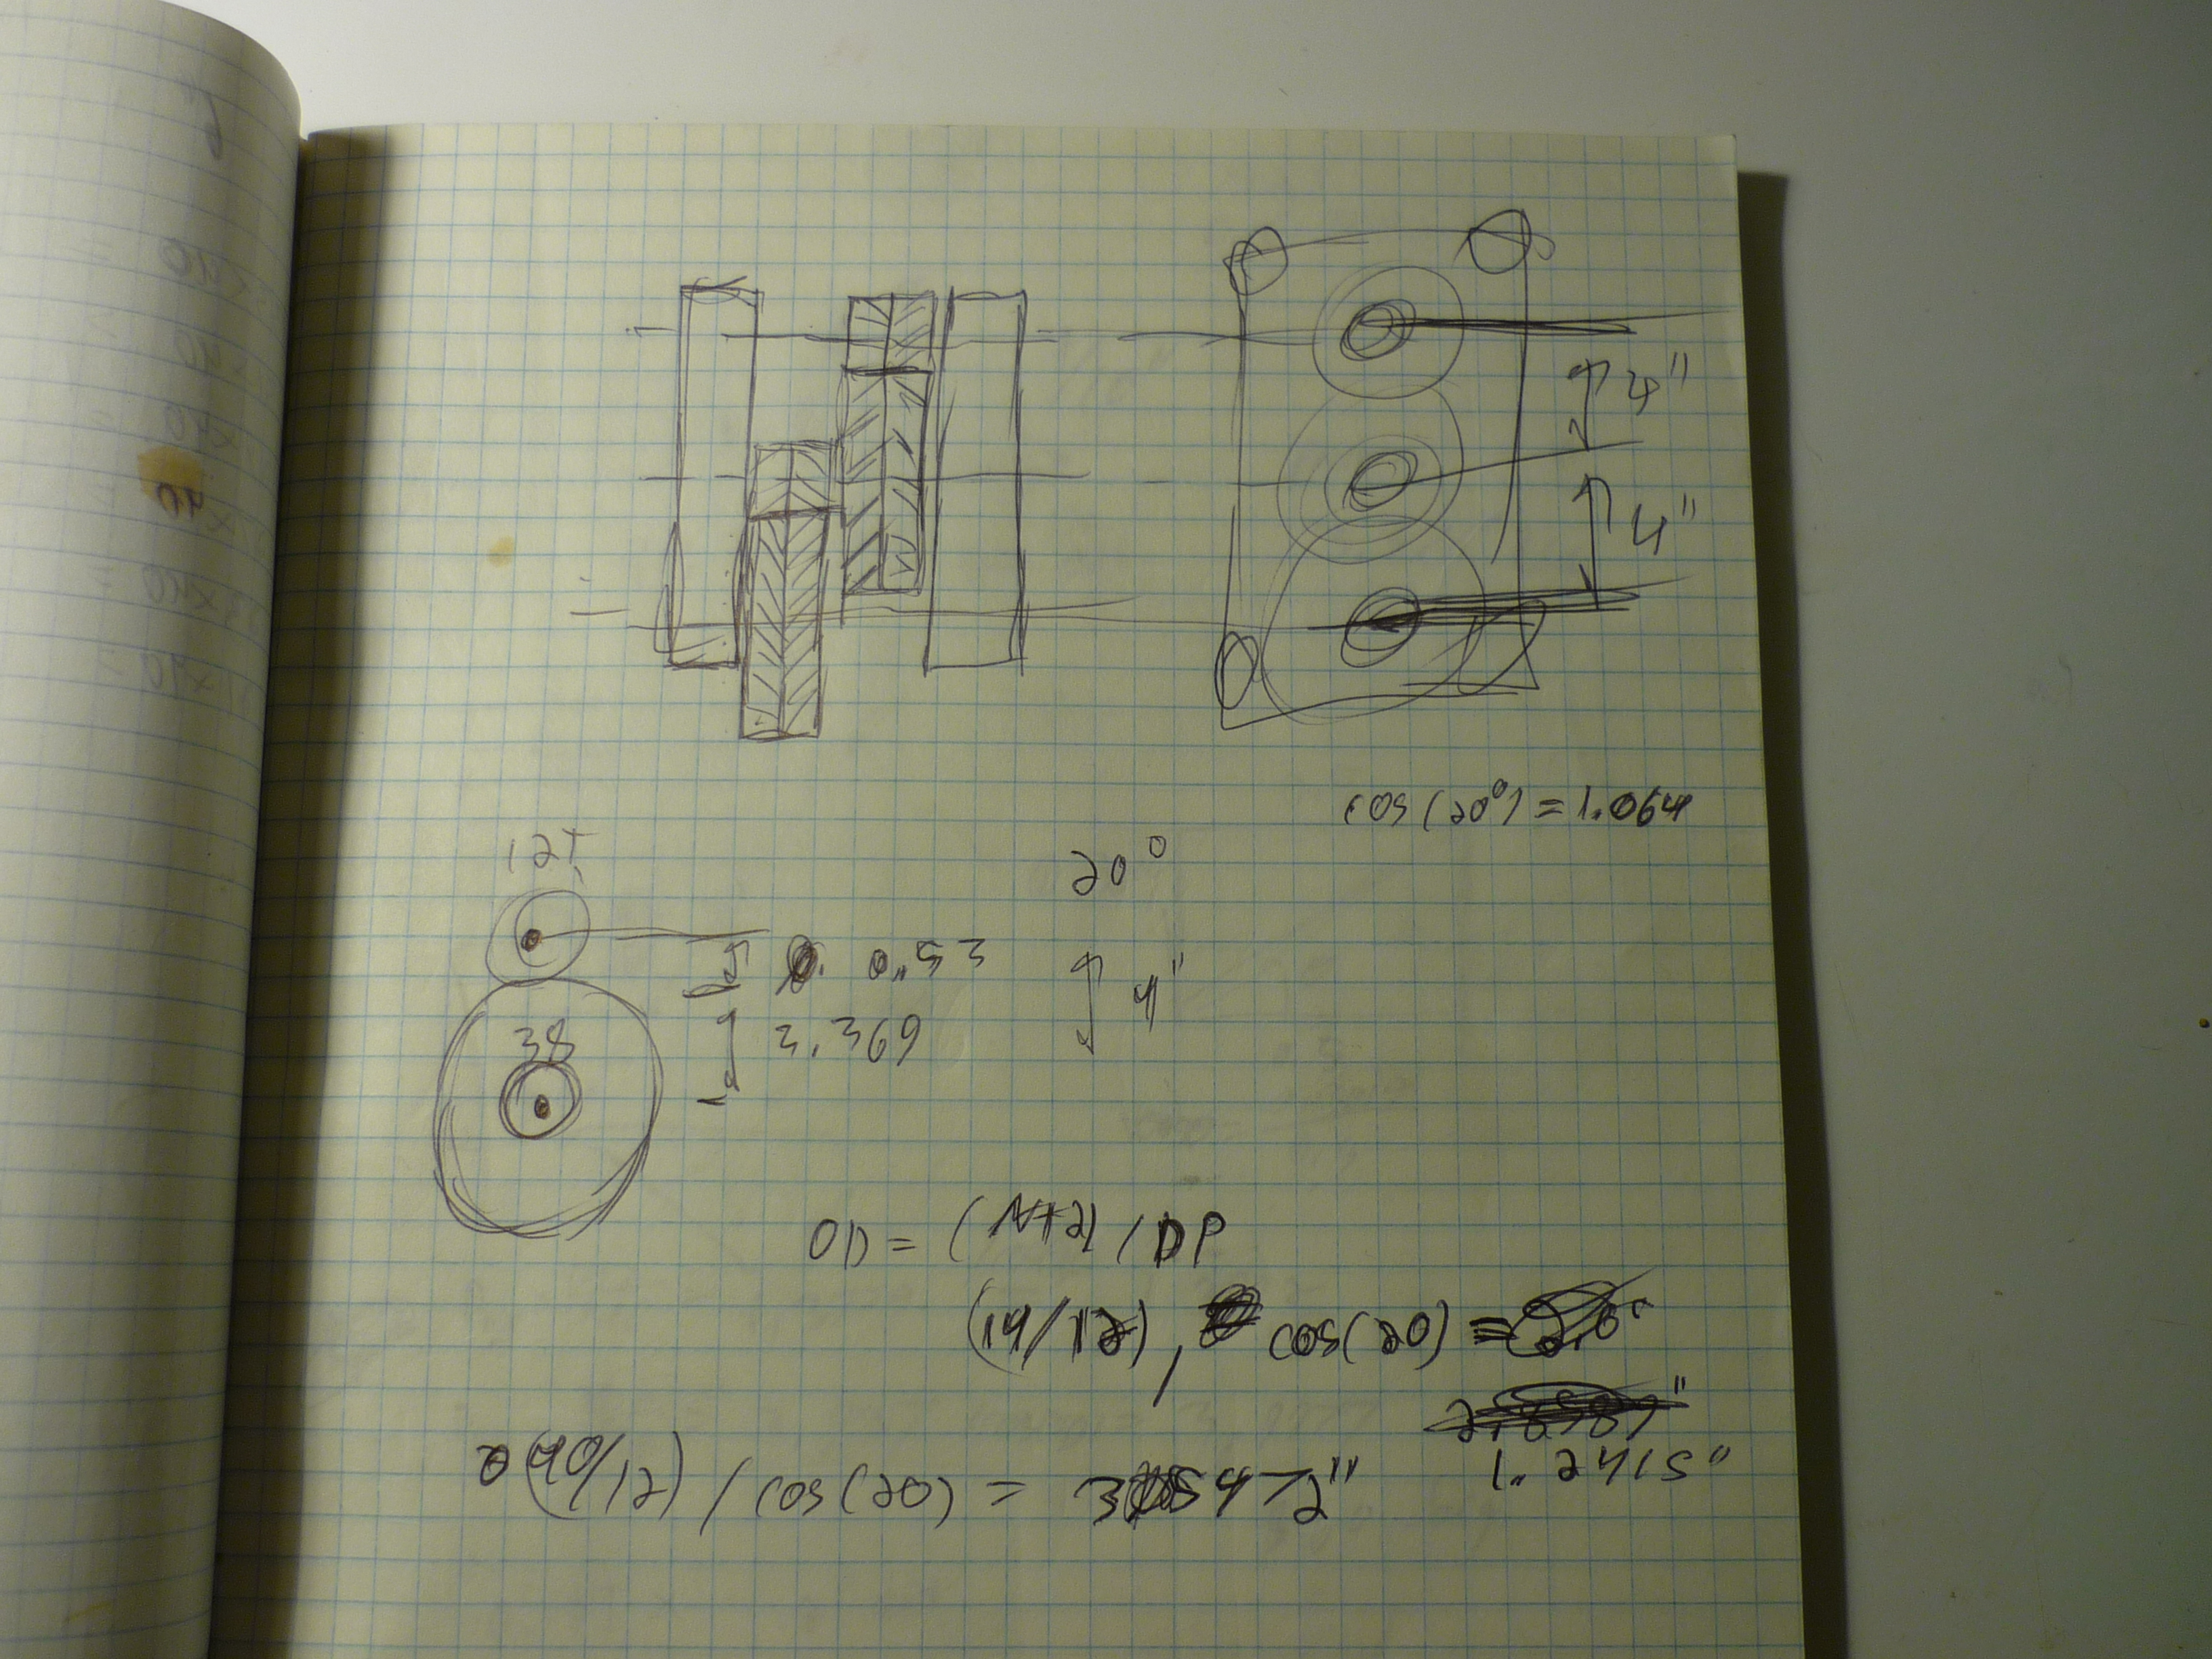 4"
4"
cos(20°) = 1.064
12T
20°
0.53
4"
38
3.369
OD = (N+2) / DP
(14/12) / cos(20) =
1.2415"
(40/12) / cos(20) =